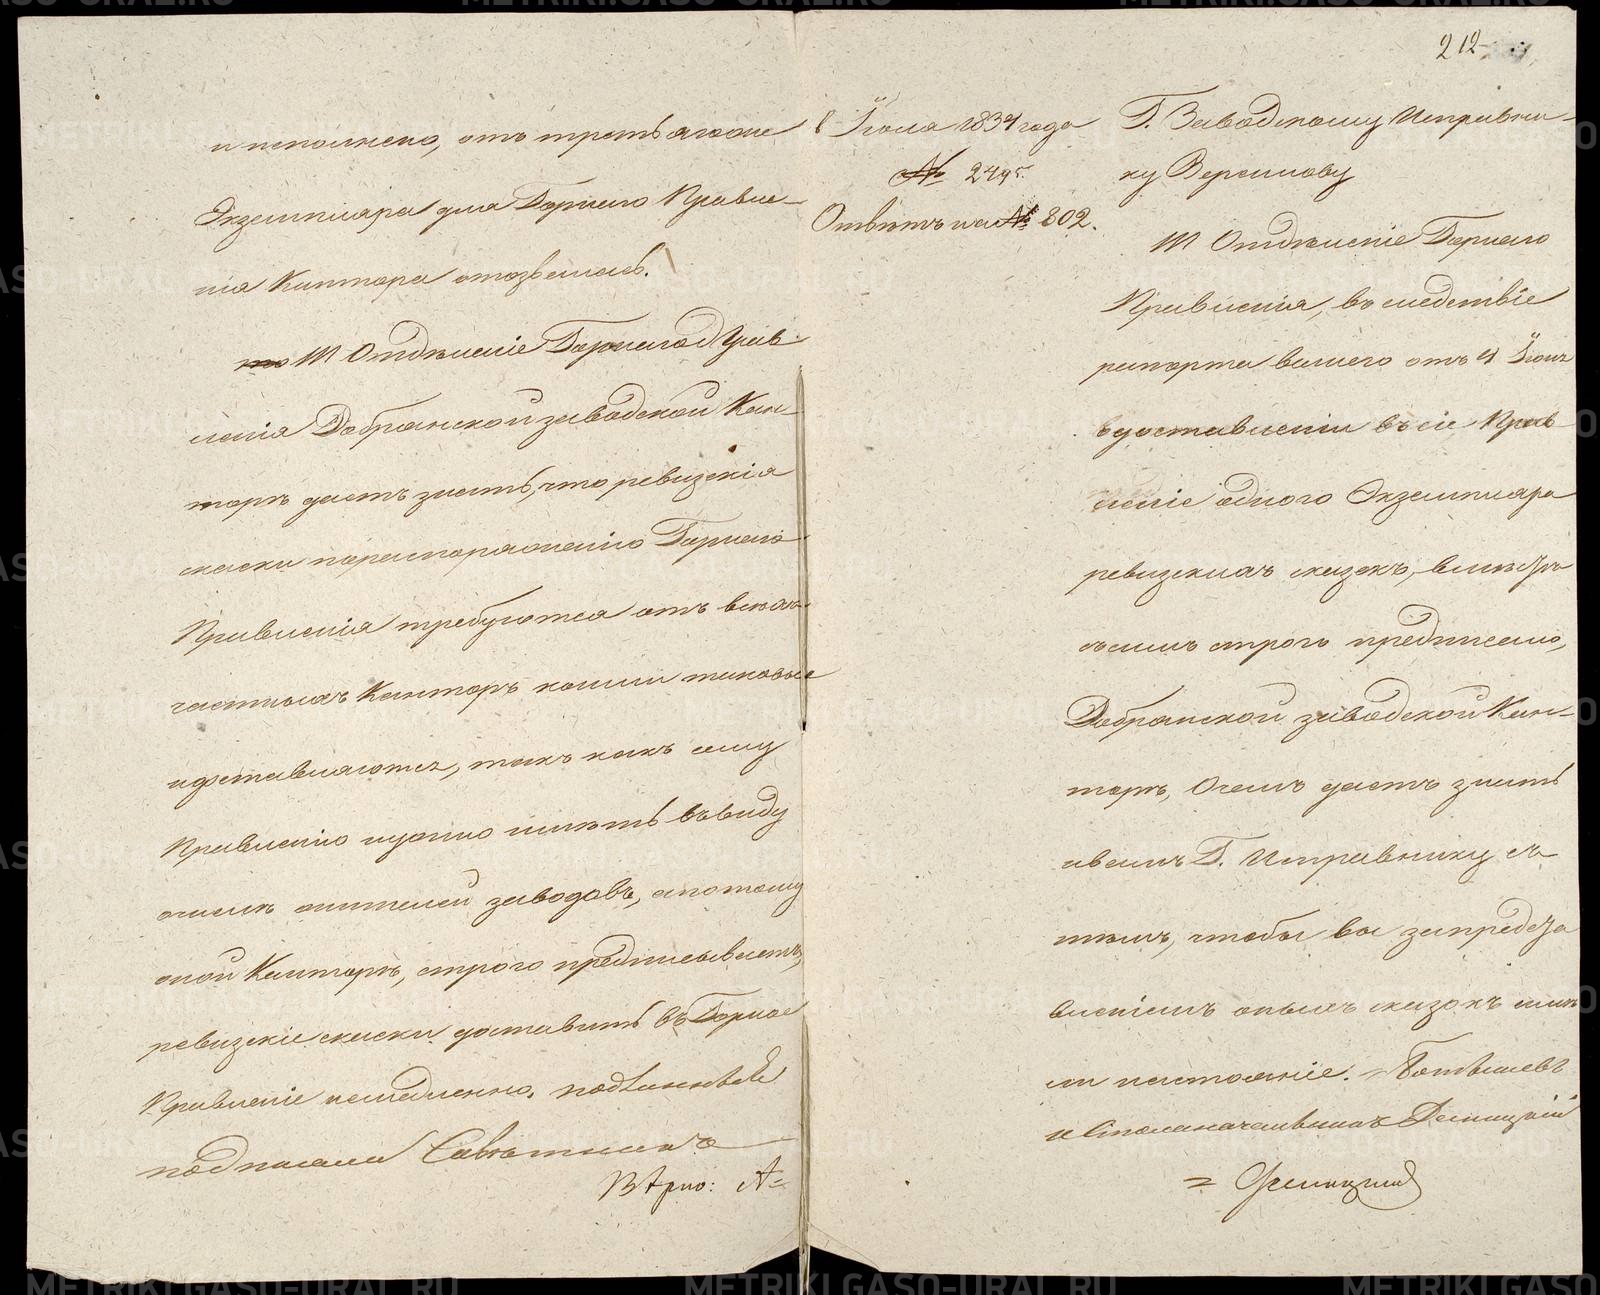 и исполнено, отъ третьяго же
Экземпляра для Горнаго Правле-
нія Контора отозвалась.
III Отдѣленіе Горнаго Прав-
ленія Добрянской заводской Кон-
торѣ даетъ знать, что ревизскія
скаски по распоряженію Горнаго
Правленія требуются отъ всѣхъ
частныхъ Конторъ коими таковые
и доставляются, такъ какъ ему
Правленію нужно имѣть въ виду
жителей заводовъ, а потому
оной Конторѣ, строго предписываетъ,
ревизскіе скаски доставить въ Горное
Правленіе немедленно. подлинное
подписалъ
Вѣрно:
212
8 Іюля 1834 года
№
Отвѣтъ на № 802.
Г. Заводскому Исправни-
ку
III Отдѣленіе Горнаго
Правленія, въ следствіе
рапорта вашего отъ 4 Іюня
о доставленіи въ сіе Прав-
леніе одного Экземпляра
ревизскихъ сказокъ,
симъ строго предписано,
Добрянской заводской Кон-
торѣ, О чемъ даетъ знать
вамъ Г. Исправнику съ
тѣмъ, чтобы вы за предста
вленіемъ оныхъ сказокъ имѣ
ли настояніе.